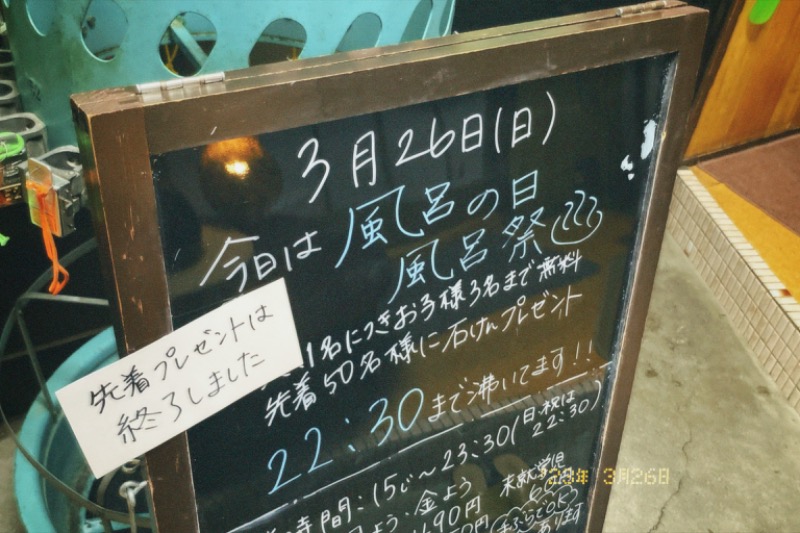 3月26日(日)
今日は風呂の日
風呂祭
1名につきお子様3名まで無料
先着50名様に石けんプレゼント
22:30まで沸いてます!!
先着プレゼントは
終了しました
時間:15じ〜23:30(日・祝は22:30)
よう・金よう
490円
未就学児
手ぶらでOK
あります
3月26日